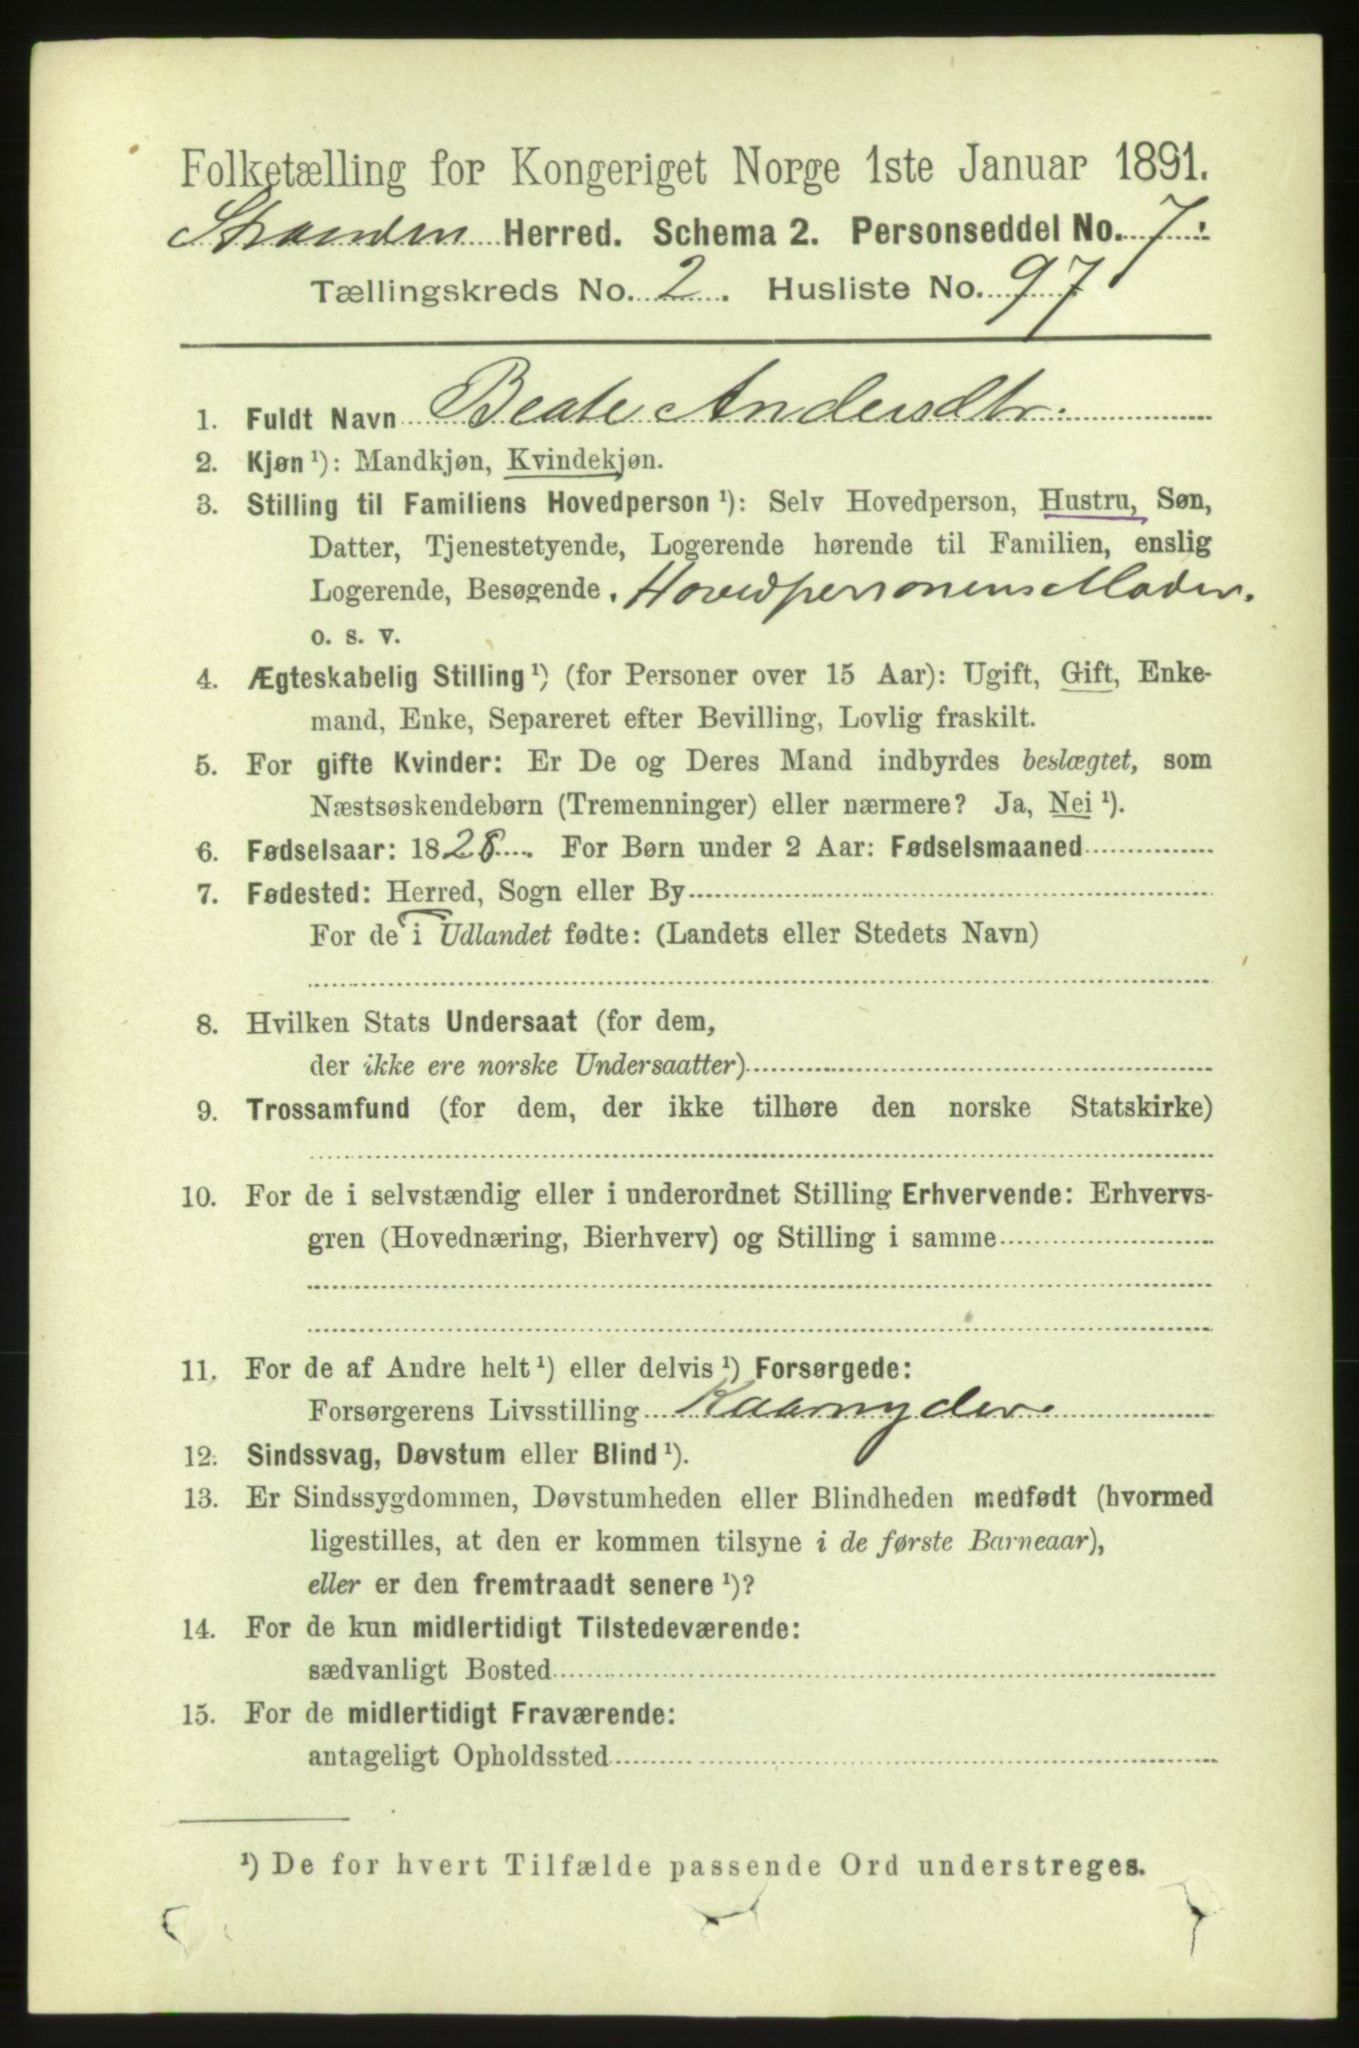 Folketælling for Kongeriget Norge 1ste Januar 1891.
Stranden Herred. Schema 2. Personseddel No. 7.
Tællingskreds No. 2. Husliste No. 97
1. Fuldt Navn Beate Andersdtr.
2. Kjøn ¹): Mandkjøn, Kvindekjøn.
3. Stilling til Familiens Hovedperson ¹): Selv Hovedperson, Hustru, Søn,
Datter, Tjenestetyende, Logerende hørende til Familien, enslig
Logerende, Besøgende. Hovedpersonens Moder.
o. s. v.
4. Ægteskabelig Stilling ¹) (for Personer over 15 Aar): Ugift, Gift, Enke-
mand, Enke, Separeret efter Bevilling, Lovlig fraskilt.
5. For gifte Kvinder: Er De og Deres Mand indbyrdes beslægtet, som
Næstsøskendebørn (Tremenninger) eller nærmere? Ja, Nei ¹).
6. Fødselsaar: 1828. For Børn under 2 Aar: Fødselsmaaned
7. Fødested: Herred, Sogn eller By
For de i Udlandet fødte: (Landets eller Stedets Navn)
8. Hvilken Stats Undersaat (for dem,
der ikke ere norske Undersaatter)
9. Trossamfund (for dem, der ikke tilhøre den norske Statskirke)
10. For de i selvstændig eller i underordnet Stilling Erhvervende: Erhvervs-
gren (Hovednæring, Bierhverv) og Stilling i samme
11. For de af Andre helt ¹) eller delvis ¹) Forsørgede:
Forsørgerens Livsstilling Kaarnyder.
12. Sindssvag, Døvstum eller Blind ¹).
13. Er Sindssygdommen, Døvstumheden eller Blindheden medfødt (hvormed
ligestilles, at den er kommen tilsyne i de første Barneaar),
eller er den fremtraadt senere ¹)?
14. For de kun midlertidigt Tilstedeværende:
sædvanligt Bosted
15. For de midlertidigt Fraværende:
antageligt Opholdssted
¹) De for hvert Tilfælde passende Ord understreges.